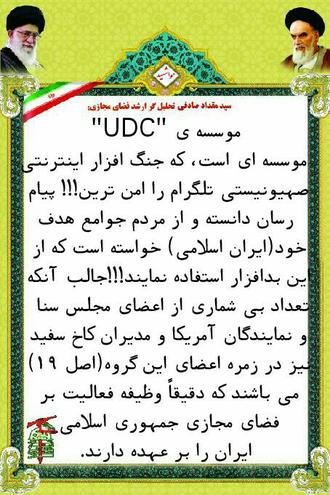 سید مقداد صادقی تحلیل گر ارشد فضای مجازی:
موسسه ی "UDC"
موسسه ای است، که جنگ افزار اینترنتی
صهیونیستی تلگرام را امن ترین!!! پیام
رسان دانسته و از مردم جوامع هدف
خود(ایران اسلامی) خواسته است که از
این بدافزار استفاده نمایند!!!جالب آنکه
تعداد بی شماری از اعضای مجلس سنا
و نمایندگان آمریکا و مدیران کاخ سفید
نیز در زمره اعضای این گروه(اصل ۱۹)
می باشند که دقیقاً وظیفه فعالیت بر
فضای مجازی جمهوری اسلامی
ایران را بر عهده دارند.